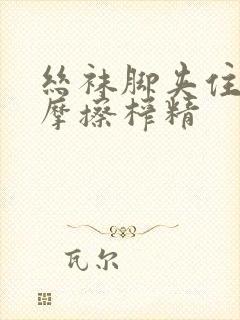 丝袜脚夹住
摩擦榨精
瓦尔